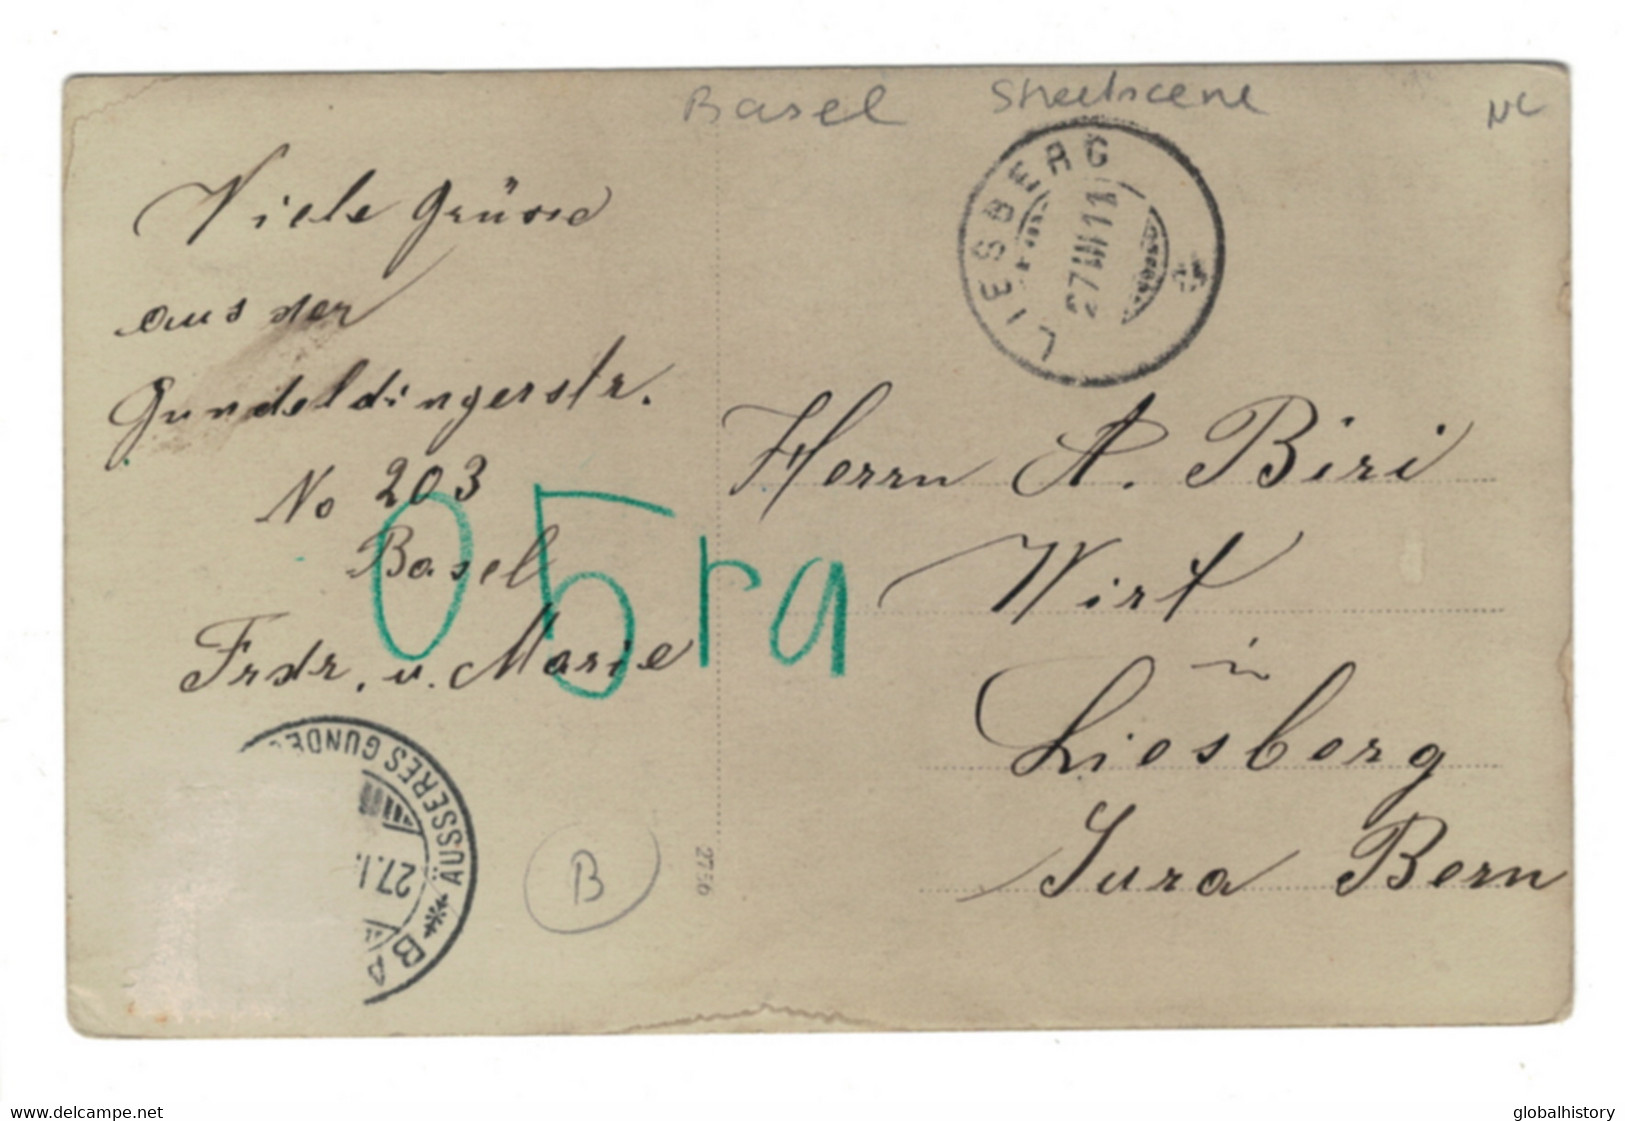 Basel Streetscene
NC
Viele Grüsse
aus der
Gundeldingerstr.
No 203
Basel
Frdr. u. Marie
LIESBERG
27 III 11
05ra
Herrn A. Biri
Wirt
in
Liesberg
Jura Bern
ÄUSSERES GUNDE
27.I
BA
B
2736
www.delcampe.net
globalhistory